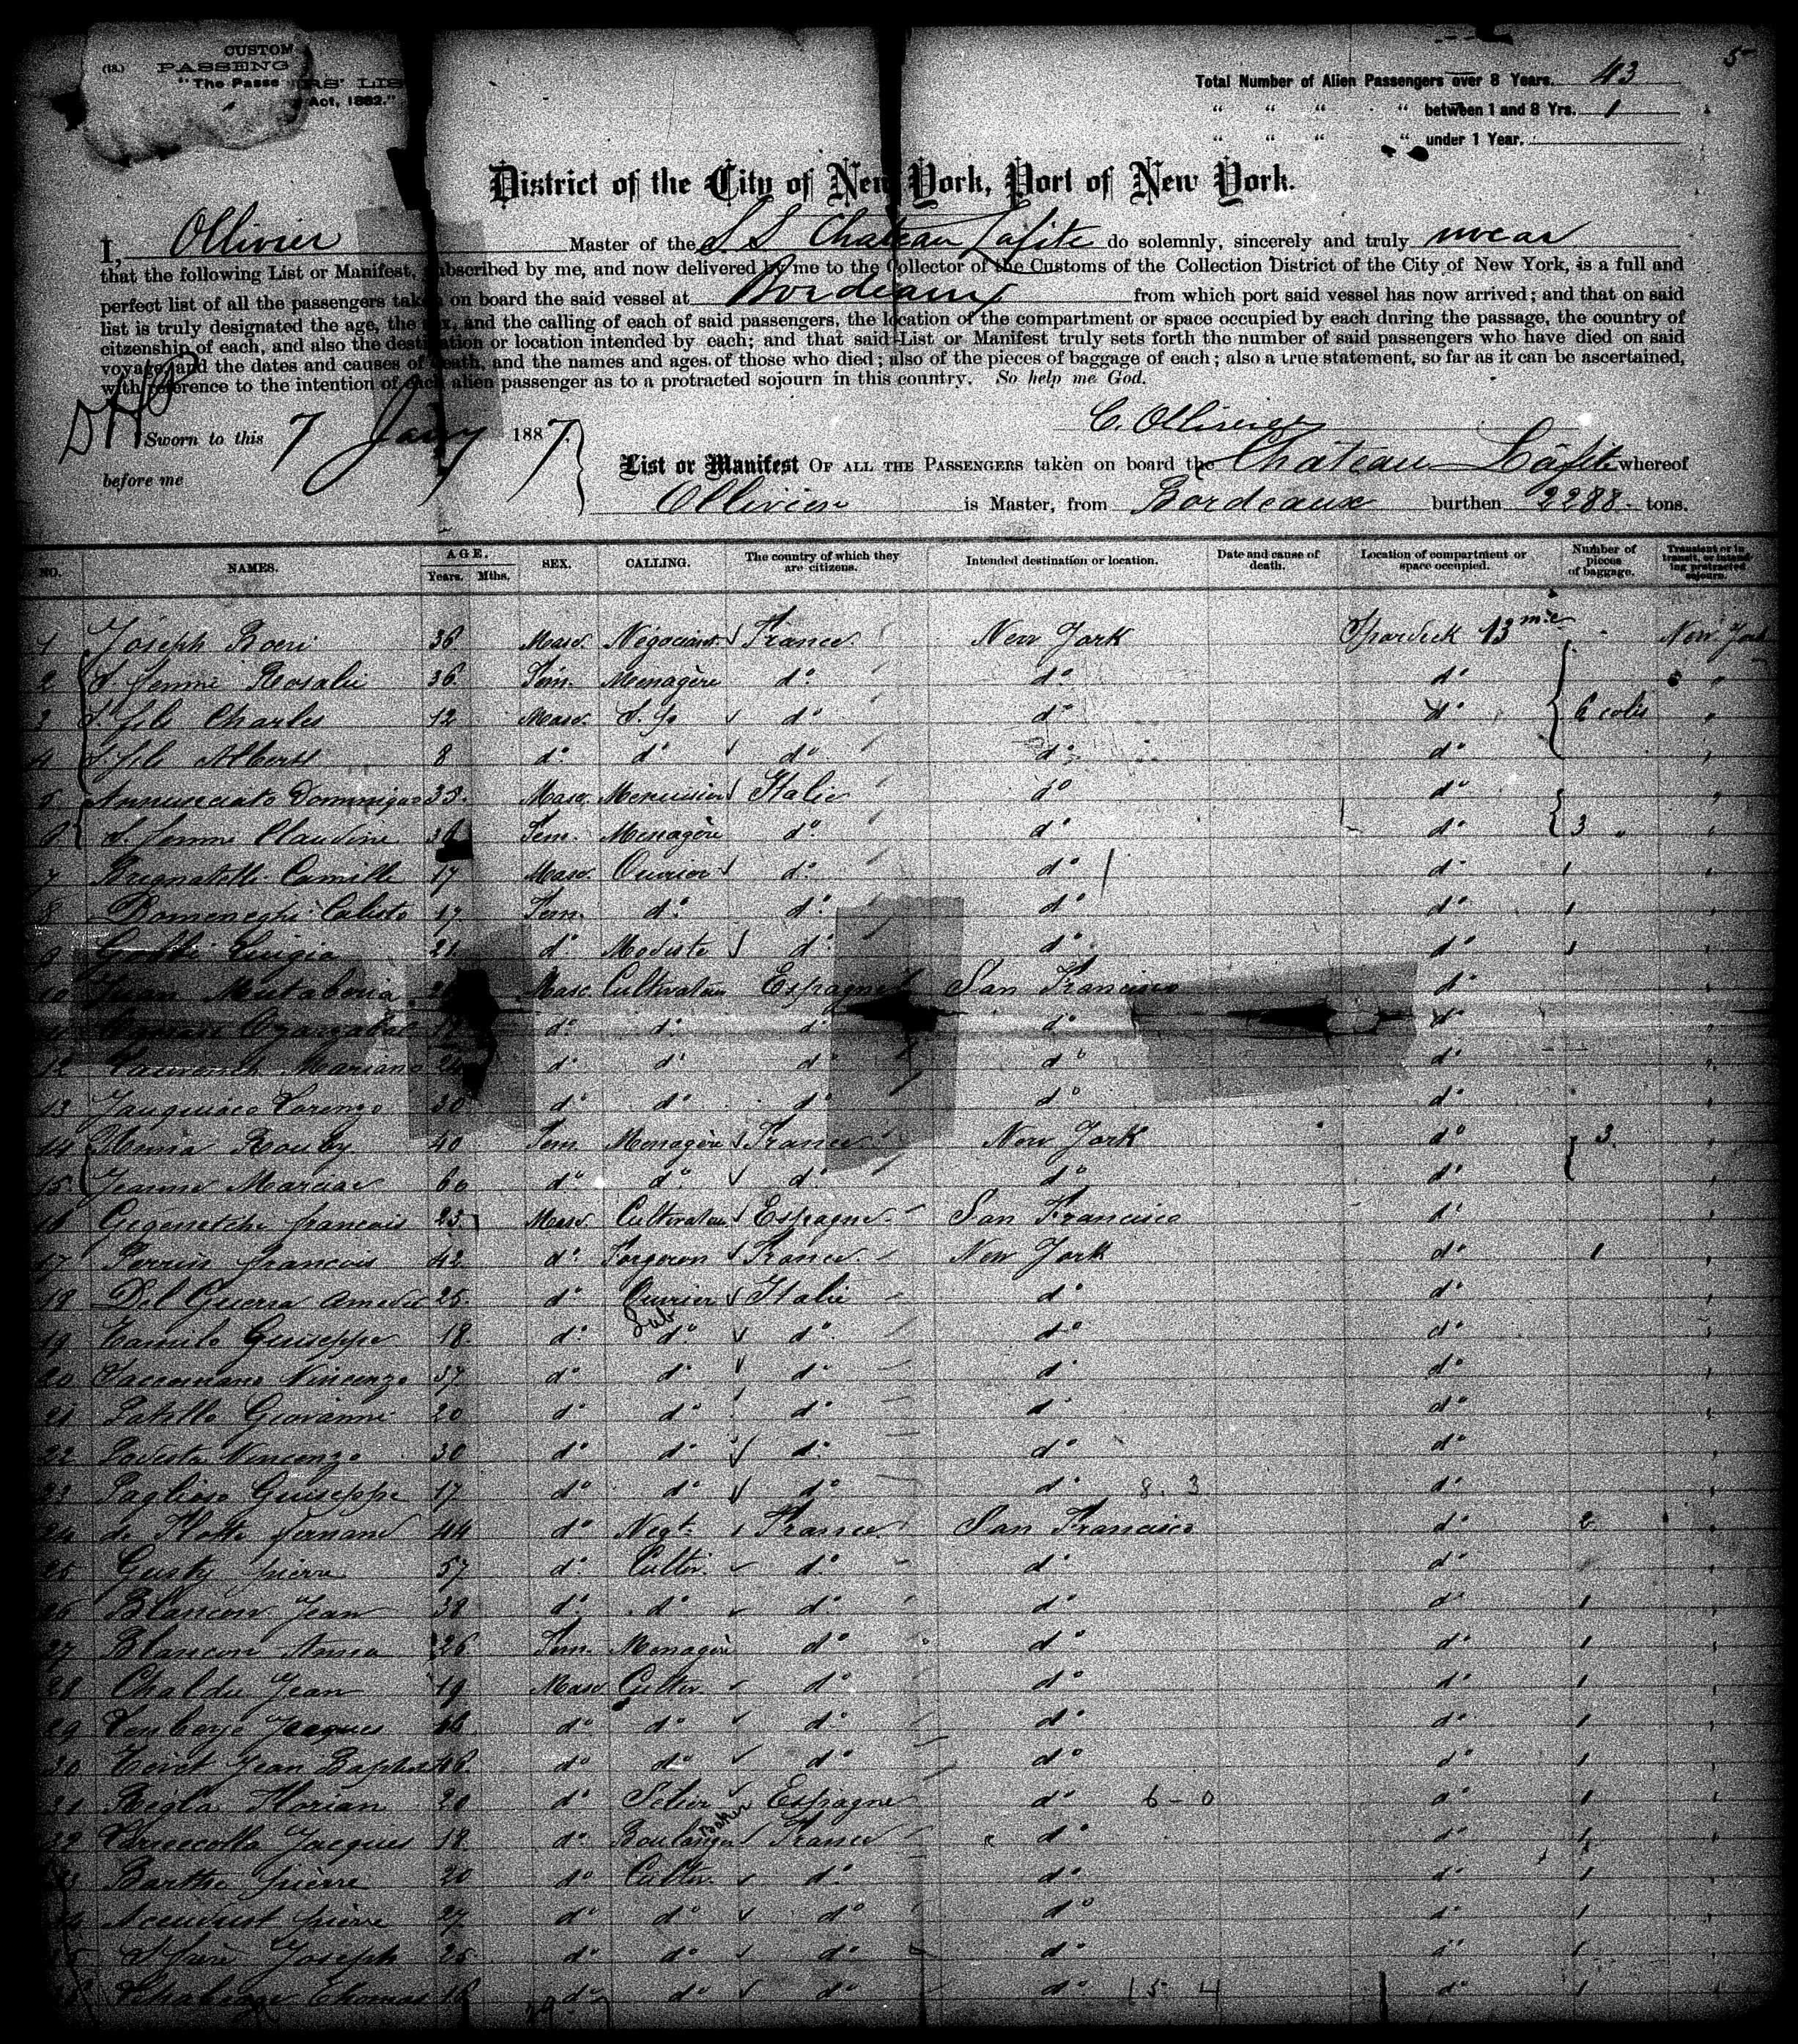 5
CUSTOM
(18.) PASSENG ERS' LIS
"The Passe Act, 1882."
Total Number of Alien Passengers over 8 Years. 43
“ “ “ “ between 1 and 8 Yrs. 1
“ “ “ “ under 1 Year.
District of the City of New York, Port of New York.
I, Ollivier Master of the S S Chateau Lafite do solemnly, sincerely and truly swear
that the following List or Manifest, subscribed by me, and now delivered by me to the Collector of the Customs of the Collection District of the City of New York, is a full and
perfect list of all the passengers taken on board the said vessel at Bordeaux from which port said vessel has now arrived; and that on said
list is truly designated the age, the sex, and the calling of each of said passengers, the location of the compartment or space occupied by each during the passage, the country of
citzenship of each, and also the destination or location intended by each; and that said List or Manifest truly sets forth the number of said passengers who have died on said
voyage, and the dates and causes of death, and the names and ages of those who died; also of the pieces of baggage of each; also a true statement, so far as it can be ascertained,
with reference to the intention of each alien passenger as to a protracted sojourn in this country. So help me God.
C. Ollivier
Sworn to this 7 Jany 1887.
before me
List or Manifest OF ALL THE PASSENGERS taken on board the Château Lafite whereof
Ollivier is Master, from Bordeaux burthen 2288 tons.
NO. NAMES. AGE. Years. Mths. SEX. CALLING. The country of which they are citizens. Intended destination or location. Date and cause of death. Location of compartment or space occupied. Number of pieces of baggage. Transient or in transit, or intending protracted sojourn.
1 Joseph Boeri 36 Masc. Négociant France New York Spardeck 3me New York
2 S. femme Rosalie 36 Fém. Ménagère do do do "
3 S. fils Charles 12 Masc. S. p. do do do 6 colis "
4 S. fils Albert 8 do do do do do "
5 Annunciato Dominique 33 Masc. Menuisier Italie do do "
6 S. femme Claudine Fem. Menagère do do do 3 " "
7 Brignatelli Camille 17 Masc. Ouvrier do do do 1 "
8 Domeneghi Calisto 17 Fem. do do do do 1 "
9 Luigia 21 do Modiste do do do 1 "
10 Juan Masc. Cultivateur Espagne San Francisco do "
11 do do do do do "
12 Mariano 24 do do do do do "
13 Lorenzo 30 do do do do do "
14 Anna Rouby 40 Fem. Menagère France New York do 3 "
15 Jeanne 60 do do do do do "
16 Gegenetche francois 23 Masc. Cultivateur Espagne San Francisco do "
17 Perrin francois 42 do Forgeron France New York do 1 "
18 Del Guerra Amedee 25 do Ouvrier Italie do do "
19 Giuseppe 18 do Lab do do do do "
20 Vincenzo 37 do do do do do "
21 Patillo Giovanni 20 do do do do do "
22 Podesta Vincenzo 30 do do do do do "
23 Paglioso Guiseppe 17 do do do do 8. 3 do "
24 de Flotte fernand 44 do Negt. France San Francisco do 2 "
25 Gusty pierre 57 do Cultiv. do do do "
26 Blancon Jean 38 do do do do do 1 "
27 Blancon Anna 26 Fem. Menagère do do do 1 "
28 Chaldu Jean 19 Masc Cultiv. do do do 1 "
29 Jacques do do do do do 1 "
30 Jean Baptiste do do do do do 1 "
31 Regla Florian 20 do Espagne do 6 - 0 do 1 "
32 Jacques 18 do Boulanger Baker France do do 1 "
33 Barthe pierre 20 do Cultiv. do do do 1 "
34 pierre 27 do do do do do 1 "
35 Joseph 25 do do do do do 1 "
36 Thomas 16 do do do do 15 4 do 1 "